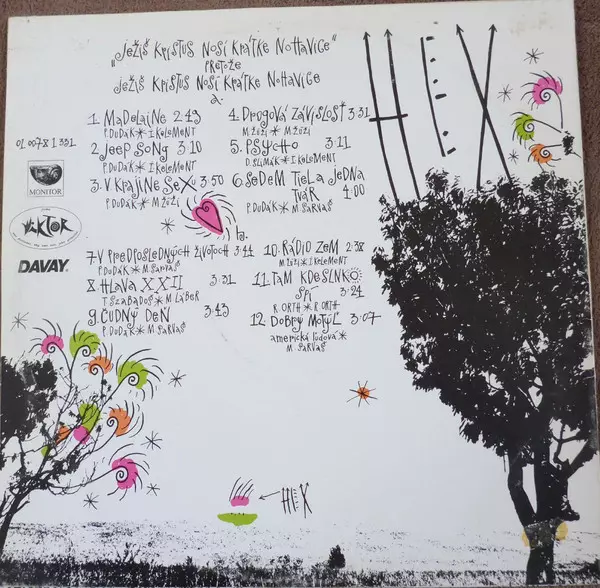 „JEŽIŠ KRISTUS NOSÍ KRÁTKE NOHAVICE“
PRETOŽE
JEŽIŠ KRISTUS NOSÍ KRÁTKE NOHAVICE
a.
1. MADELAINE 2 43
P. DUDÁK * I. KOLEMENT
2. JEEP SONG 3 10
P. DUDÁK * I. KOLEMENT
3. V KRAJINE SEXU 3 50
P. DUDÁK * M. ŽÚŽI
4. DROGOVÁ ZÁVISLOSŤ 3 31
M. ŽÚŽI * M. ŽÚŽI
5. PSYCHO 3 11
D. SLIMÁK * I. KOLEMENT
6. SEDEM TIELA JEDNA
TVÁR 4 00
P. DUDÁK * M. SARVAŠ
b.
7. V PREDPOSLEDNÝCH ŽIVOTOCH 3 44
P. DUDÁK * M. SARVAŠ
8. HLAVA XXII 3 31
T. SZABADOS * M. LÁBER
9. ČUDNÝ DEŇ 3 43
P. DUDÁK * M. SARVAŠ
10. RÁDIO ZEM 2 38
M. ŽÚŽI * I. KOLEMENT
11. TAM KDE SLNKO
SPÍ 3 24
R. ORTH * R. ORTH
12. DOBRÝ MOTÝĽ 3 07
americká ľudová *
M. SARVAŠ
01 0078 1 331
MONITOR
VIKTOR
DAVAY
HEX
HEX